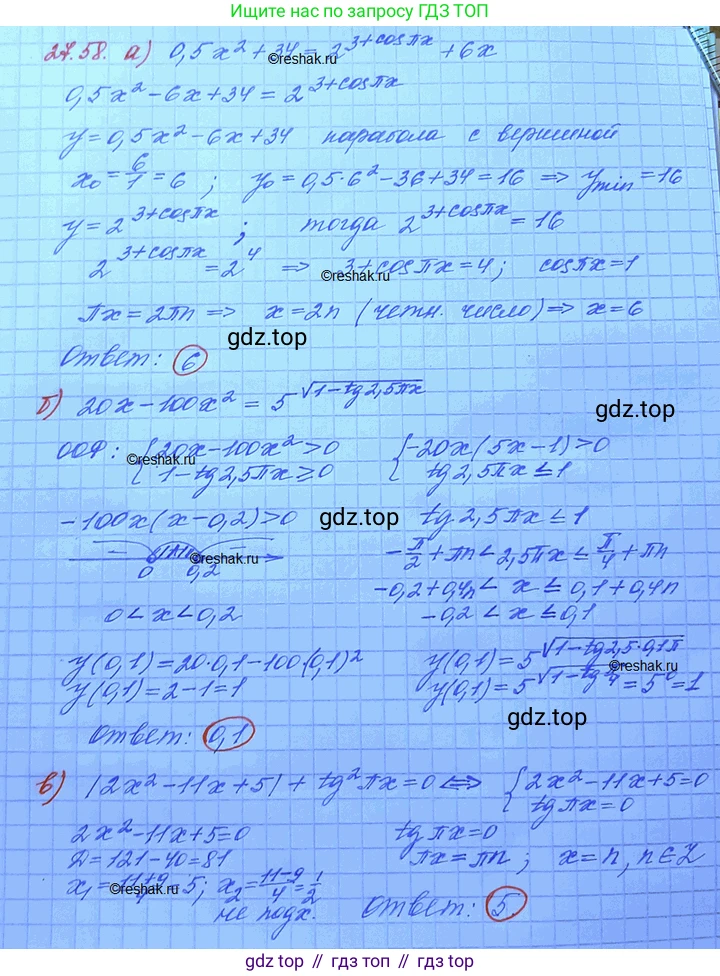 Ищите нас по запросу ГДЗ ТОП
27.58. а) 0,5x² + 34 = 2^(3+cosπx) + 6x
©reshak.ru
0,5x² - 6x + 34 = 2^(3+cosπx)
y = 0,5x² - 6x + 34 парабола с вершиной
x₀ = 6/1 = 6 ; y₀ = 0,5·6² - 36 + 34 = 16 ⇒ y min = 16
y = 2^(3+cosπx) ; тогда 2^(3+cosπx) = 16
2^(3+cosπx) = 2⁴ ⇒ 3+cosπx = 4 ; cosπx = 1
©reshak.ru
πx = 2πn ⇒ x = 2n (четн. число) ⇒ x = 6
gdz.top
Ответ: 6
б) 20x - 100x² = 5^√(1-tg2,5πx)
gdz.top
ООФ: { 20x - 100x² > 0 { -20x(5x-1) > 0
1 - tg2,5πx ≥ 0 tg2,5πx ≤ 1
©reshak.ru
-100x(x-0,2) > 0 gdz.top tg2,5πx ≤ 1
- + - -π/2 + πn < 2,5πx ≤ π/4 + πn
©reshak.ru
0 0,2 -0,2 + 0,4n < x ≤ 0,1 + 0,4n
0 < x < 0,2 -0,2 < x ≤ 0,1
y(0,1) = 20·0,1 - 100·(0,1)² y(0,1) = 5^√(1-tg2,5·0,1π)
©reshak.ru
y(0,1) = 2 - 1 = 1 y(0,1) = 5^√(1-tgπ/4) = 5⁰ = 1
gdz.top
Ответ: 0,1
в) |2x² - 11x + 5| + tg²πx = 0 ⇔ { 2x² - 11x + 5 = 0
tgπx = 0
2x² - 11x + 5 = 0 tgπx = 0
Д = 121 - 40 = 81 πx = πn ; x = n, n∈Z
x₁ = (11+9)/4 = 5 ; x₂ = (11-9)/4 = 1/2
©reshak.ru
не подх. Ответ: 5.
gdz.top // гдз топ // gdz.top